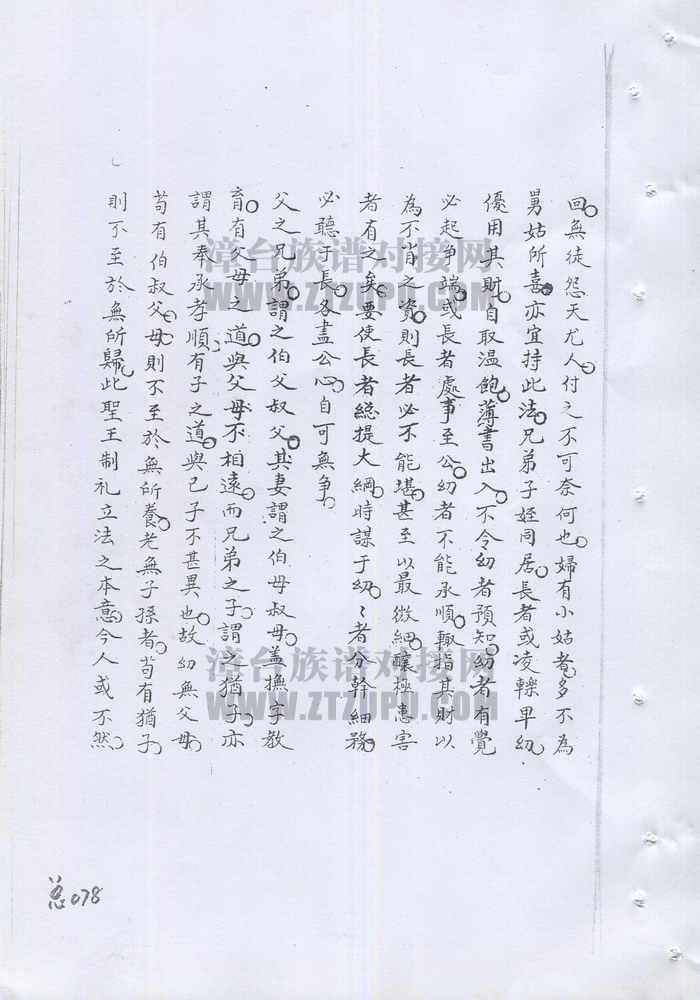 回。無徒怨天尤人。付之不可奈何也。婦有小姑者。多不為
舅姑所喜。亦宜持此法。兄弟子姪同居。長者或凌轢卑幼。
優用其財。自取溫飽。薄書出入。不令幼者預知。幼者有覺
必起爭端。或長者處事至公。幼者不能承順。輙指其財以
為不肖之資。則長者必不能堪。甚至以最微細。釀極患害
者有之矣。要使長者總提大綱。時謀于幼。〻者分幹細務。
必聽于長。各盡公心。自可無爭。
父之兄弟。謂之伯父叔父。其妻謂之伯母叔母。盖撫字教
育。有父母之道。與父母不相遠。而兄弟之子。謂之猶子。亦
謂其奉承孝順。有子之道。與己子不甚異也。故幼無父母。
苟有伯叔父母。則不至於無所養。老無子孫者。苟有猶子。
則不至於無所歸。此聖王制礼立法之本意。今人或不然。
总078
漳台族谱对接网
WWW.ZTZUPU.COM
漳台族谱对接网
WWW.ZTZUPU.COM